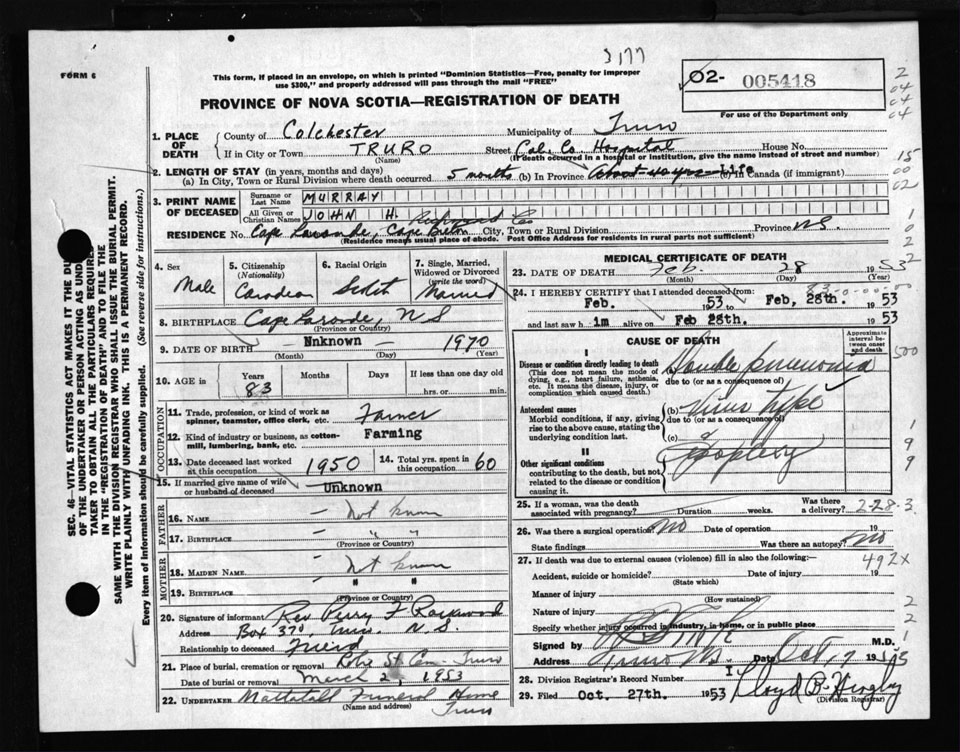 3177
FORM 6
This form, if placed in an envelope, on which is printed "Dominion Statistics—Free, penalty for improper
use $300," and properly addressed will pass through the mail "FREE"
02- 005418
For use of the Department only
PROVINCE OF NOVA SCOTIA—REGISTRATION OF DEATH
2
04
04
04
15
00
02
1
0
2
2
500
1
9
9
3
2
2
1
SEC. 46—VITAL STATISTICS ACT MAKES IT THE DU
OF THE UNDERTAKER OR PERSON ACTING AS UND
TAKER TO OBTAIN ALL THE PARTICULARS REQUIRE
IN THE "REGISTRATION OF DEATH" AND TO FILE THE
SAME WITH THE DIVISION REGISTRAR WHO SHALL ISSUE THE BURIAL PERMIT.
WRITE PLAINLY WITH UNFADING INK. THIS IS A PERMANENT RECORD.
Every item of information should be carefully supplied. (See reverse side for instructions.)
1. PLACE OF DEATH
County of Colchester Municipality of Truro
If in City or Town TRURO Street Col. Co. Hospital House No.
(Name) (If death occurred in a hospital or institution, give the name instead of street and number)
2. LENGTH OF STAY (in years, months and days)
(a) In City, Town or Rural Division where death occurred 5 months (b) In Province Life (c) In Canada (if immigrant)
3. PRINT NAME OF DECEASED
Surname or Last Name MURRAY
All Given or Christian Names JOHN H. Richmond Co
RESIDENCE No. Cape Laronde, Cape Breton City, Town or Rural Division Province NS.
(Residence means usual place of abode. Post Office Address for residents in rural parts not sufficient)
4. Sex
Male
5. Citizenship (Nationality)
6. Racial Origin
7. Single, Married, Widowed or Divorced (write the word)
Married
8. BIRTHPLACE Cape Laronde, NS
(Province or Country)
9. DATE OF BIRTH Nnknown 1970
(Month) (Day) (Year)
10. AGE in Years 83 Months Days If less than one day old
hrs. or min.
OCCUPATION
11. Trade, profession, or kind of work as spinner, teamster, office clerk, etc. Farmer
12. Kind of industry or business, as cotton-mill, lumbering, bank, etc. Farming
13. Date deceased last worked at this occupation 1950
14. Total yrs. spent in this occupation 60
15. If married give name of wife or husband of deceased Unknown
FATHER
16. NAME — Not known
17. BIRTHPLACE — " "
(Province or Country)
MOTHER
18. MAIDEN NAME — Not known
19. BIRTHPLACE " "
(Province or Country)
20. Signature of informant Rev Perry F Rockwood
Address Box 370, Truro. N.S
Relationship to deceased Friend
21. Place of burial, cremation or removal Robie St. Cem - Truro
Date of burial or removal March 2, 1953
22. UNDERTAKER Mattatall Funeral Home
(Name and address) Truro
MEDICAL CERTIFICATE OF DEATH
23. DATE OF DEATH Feb. 28 1953
(Month) (Day) (Year)
24. I HEREBY CERTIFY that I attended deceased from:
Feb. 1953 to Feb, 28th. 1953
and last saw him alive on Feb 28th. 1953
CAUSE OF DEATH
Approximate interval between onset and death
I
Disease or condition directly leading to death
(This does not mean the mode of dying, e.g., heart failure, asthenia, etc. It means the disease, injury, or complication which caused death.)
(a) Double pneumonia
due to (or as a consequence of)
Antecedent causes
Morbid conditions, if any, giving rise to the above cause, stating the underlying condition last.
(b) Virus type
due to (or as a consequence of)
(c)
II
Other significant conditions
contributing to the death, but not related to the disease or condition causing it.
Apoplexy
25. If a woman, was the death associated with pregnancy? Duration weeks. Was there a delivery?
2-28-3
26. Was there a surgical operation? No Date of operation 19
State findings Was there an autopsy? No
492X
27. If death was due to external causes (violence) fill in also the following:—
Accident, suicide or homicide? Date of injury 19
(State which)
Manner of injury
(How sustained)
Nature of injury
Specify whether injury occurred in industry, in home, or in public place
Signed by M.D.
Address Truro NS. Date Oct, 7 19
28. Division Registrar's Record Number
29. Filed Oct. 27th. 1953
(Division Registrar)